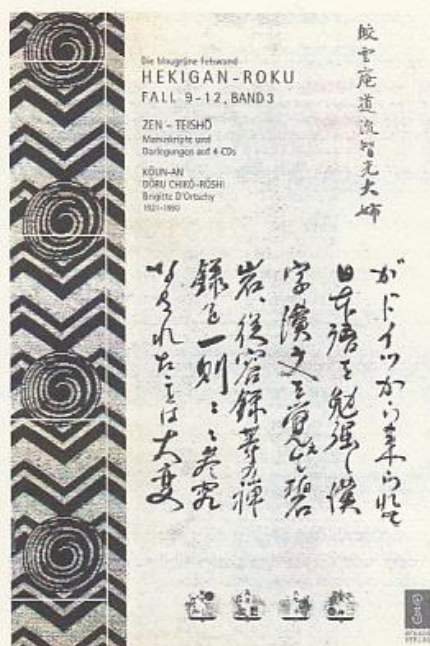 Die blaugrüne Felswand
HEKIGAN-ROKU
FALL 9-12, BAND 3
ZEN - TEISHŌ
Manuskripte und
Darlegungen auf 4 CDs
KŌUN-AN
DŌRU CHIKŌ-RŌSHI
Brigitte D'Ortschy
1921-1990
庵道流智光大姉
がドイツから来られ
日本語を勉強し漢
字漢文を覚え碧
岩、従容録等の禅
録を一則一則
られたことは大変